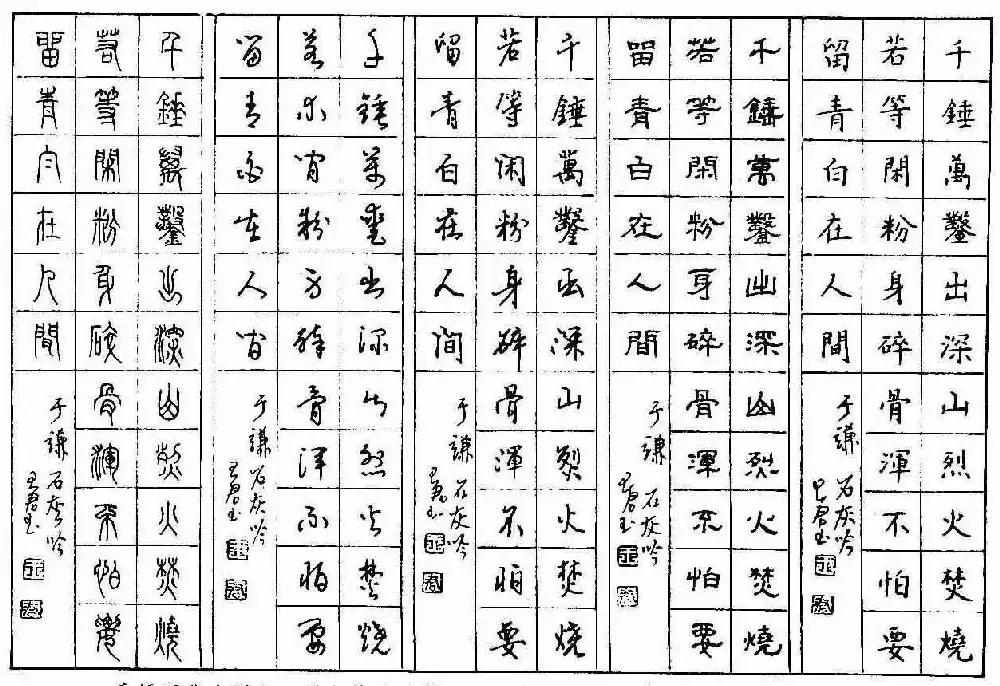 千錘萬鑿出深山烈火焚燒
若等閑粉身碎骨渾不怕要
留青白在人間
于謙 石灰吟
千錘萬鑿出深山烈火焚燒
若等閑粉身碎骨渾不怕要
留青白在人間
于謙 石灰吟
千錘萬鑿出深山烈火焚燒
若等閑粉身碎骨渾不怕要
留青白在人間
于謙 石灰吟
千錘萬鑿出深山烈火焚燒
若等閑粉身碎骨渾不怕要
留青白在人間
于謙 石灰吟
千錘萬鑿出深山烈火焚燒
若等閑粉身碎骨渾不怕要
留青白在人間
于謙 石灰吟